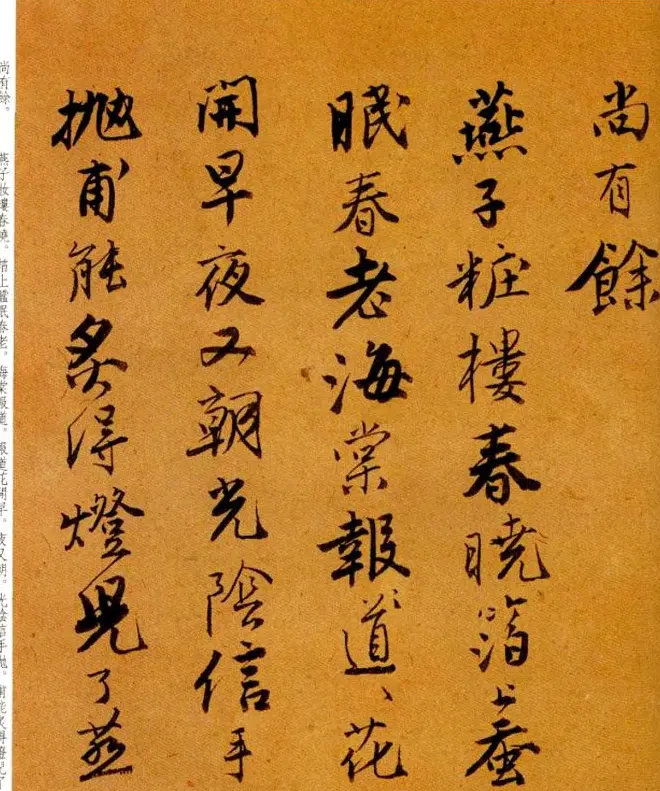 尚有餘
燕子粧樓春曉箔上蚕
眠春老海棠報道、花
開早夜又朝光陰信手
抛甫能炙得燈兒了
尚有餘。 燕子妝樓春曉。箔上蠶眠春老。海棠報道。報道花開早。夜又朝。光陰信手抛。甫能炙得燈兒了